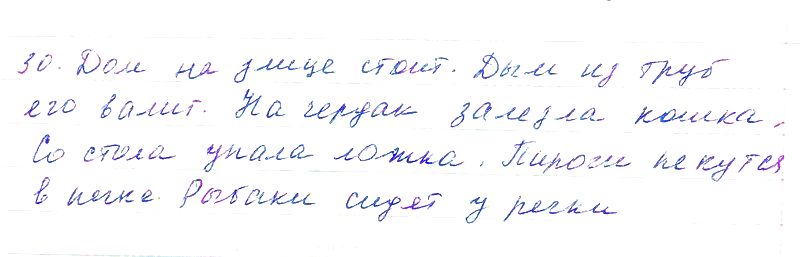 30. Дом на улице стоит. Дым из труб
его валит. На чердак залезла кошка,
Со стола упала ложка. Пироги пекутся
в печке. Рыбаки сидят у речки